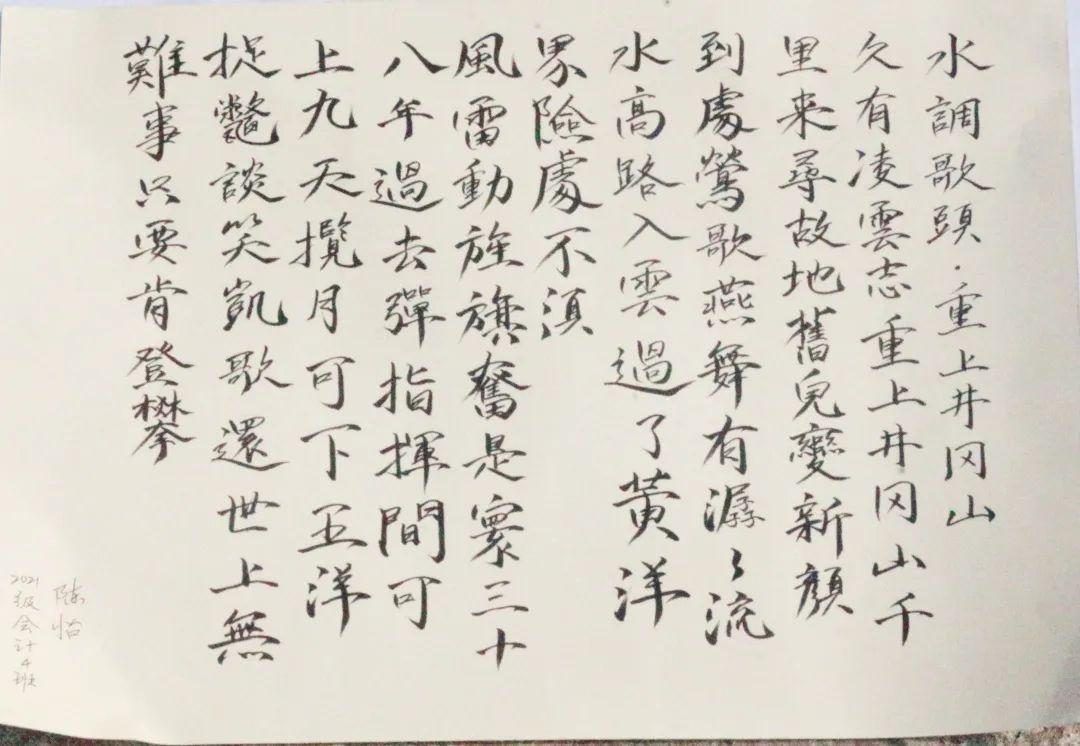 水調歌頭·重上井冈山
久有凌雲志重上井冈山千
里来尋故地舊皃變新顔
到處鶯歌燕舞有潺々流
水高路入雲過了黄洋
界險處不湏
風雷動旌旗奮是寰三十
八年過去彈指揮間可
上九天攬月可下五洋
捉鼈談笑凱歌還世上無
難事只要肯登攀
陈怡
2021级会计4班